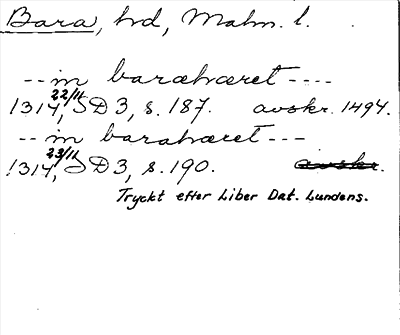 Bara, hd, Malm. l.
-- in baræhæret ----
22/11
1314, SD 3, s. 187. avskr. 1494.
-- in barahæret ---
23/11
1314, SD 3, s. 190. avskr.
Tryckt efter Liber Dat. Lundens.